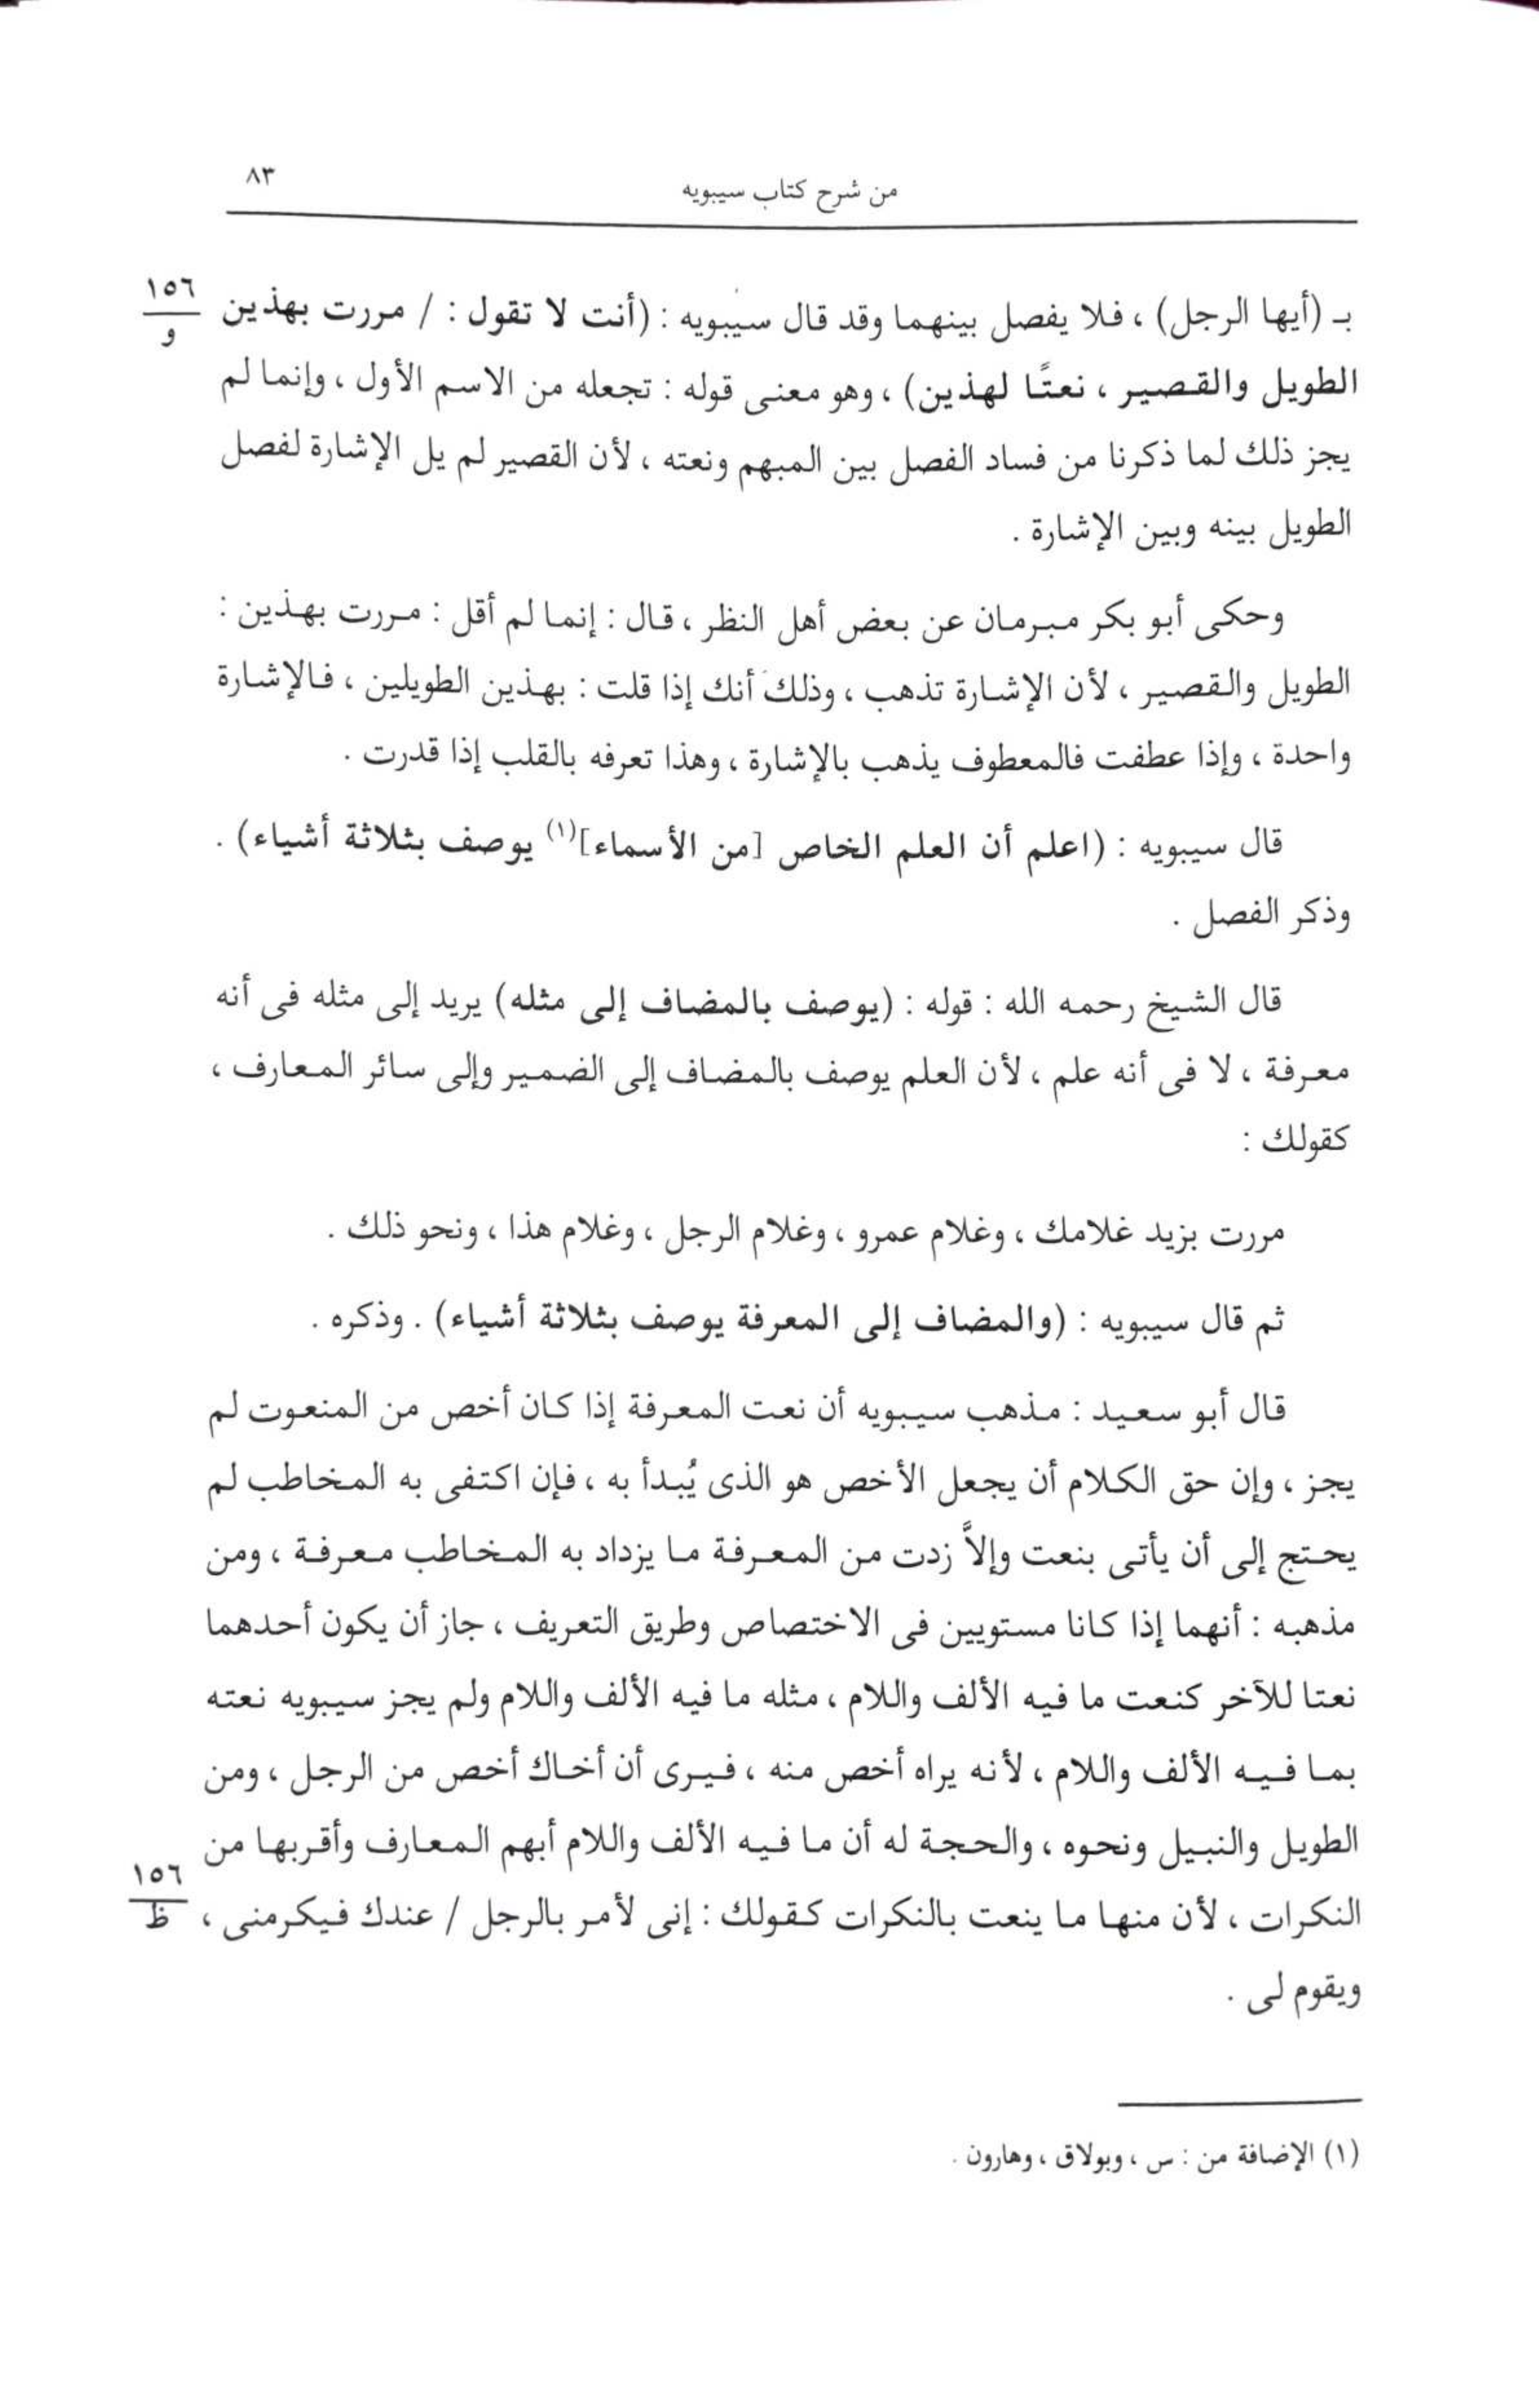 من شرح كتاب سيبويه ٨٣
بـ (أيها الرجل) ، فلا يفصل بينهما وقد قال سيبويه : (أنت لا تقول : / مررت بهذين ١٥٦ و
الطويل والقصير ، نعتًا لهذين) ، وهو معنى قوله : تجعله من الاسم الأول ، وإنما لم
يجز ذلك لما ذكرنا من فساد الفصل بين المبهم ونعته ، لأن القصير لم يل الإشارة لفصل
الطويل بينه وبين الإشارة .
وحكى أبو بكر مبرمان عن بعض أهل النظر ، قال : إنما لم أقل : مررت بهذين :
الطويل والقصير ، لأن الإشارة تذهب ، وذلك أنك إذا قلت : بهذين الطويلين ، فالإشارة
واحدة ، وإذا عطفت فالمعطوف يذهب بالإشارة ، وهذا تعرفه بالقلب إذا قدرت .
قال سيبويه : (اعلم أن العلم الخاص [من الأسماء](١) يوصف بثلاثة أشياء) .
وذكر الفصل .
قال الشيخ رحمه الله : قوله : (يوصف بالمضاف إلى مثله) يريد إلى مثله فى أنه
معرفة ، لا فى أنه علم ، لأن العلم يوصف بالمضاف إلى الضمير وإلى سائر المعارف ،
كقولك :
مررت بزيد غلامك ، وغلام عمرو ، وغلام الرجل ، وغلام هذا ، ونحو ذلك .
ثم قال سيبويه : (والمضاف إلى المعرفة يوصف بثلاثة أشياء) . وذكره .
قال أبو سعيد : مذهب سيبويه أن نعت المعرفة إذا كان أخص من المنعوت لم
يجز ، وإن حق الكلام أن يجعل الأخص هو الذى يُبدأ به ، فإن اكتفى به المخاطب لم
يحتج إلى أن يأتى بنعت وإلاَّ زدت من المعرفة ما يزداد به المخاطب معرفة ، ومن
مذهبه : أنهما إذا كانا مستويين فى الاختصاص وطريق التعريف ، جاز أن يكون أحدهما
نعتا للآخر كنعت ما فيه الألف واللام ، مثله ما فيه الألف واللام ولم يجز سيبويه نعته
بما فيه الألف واللام ، لأنه يراه أخص منه ، فيرى أن أخاك أخص من الرجل ، ومن
الطويل والنبيل ونحوه ، والحجة له أن ما فيه الألف واللام أبهم المعارف وأقربها من
النكرات ، لأن منها ما ينعت بالنكرات كقولك : إنى لأمر بالرجل / عندك فيكرمنى ، ١٥٦ ظ
ويقوم لى .
(١) الإضافة من : س ، وبولاق ، وهارون .